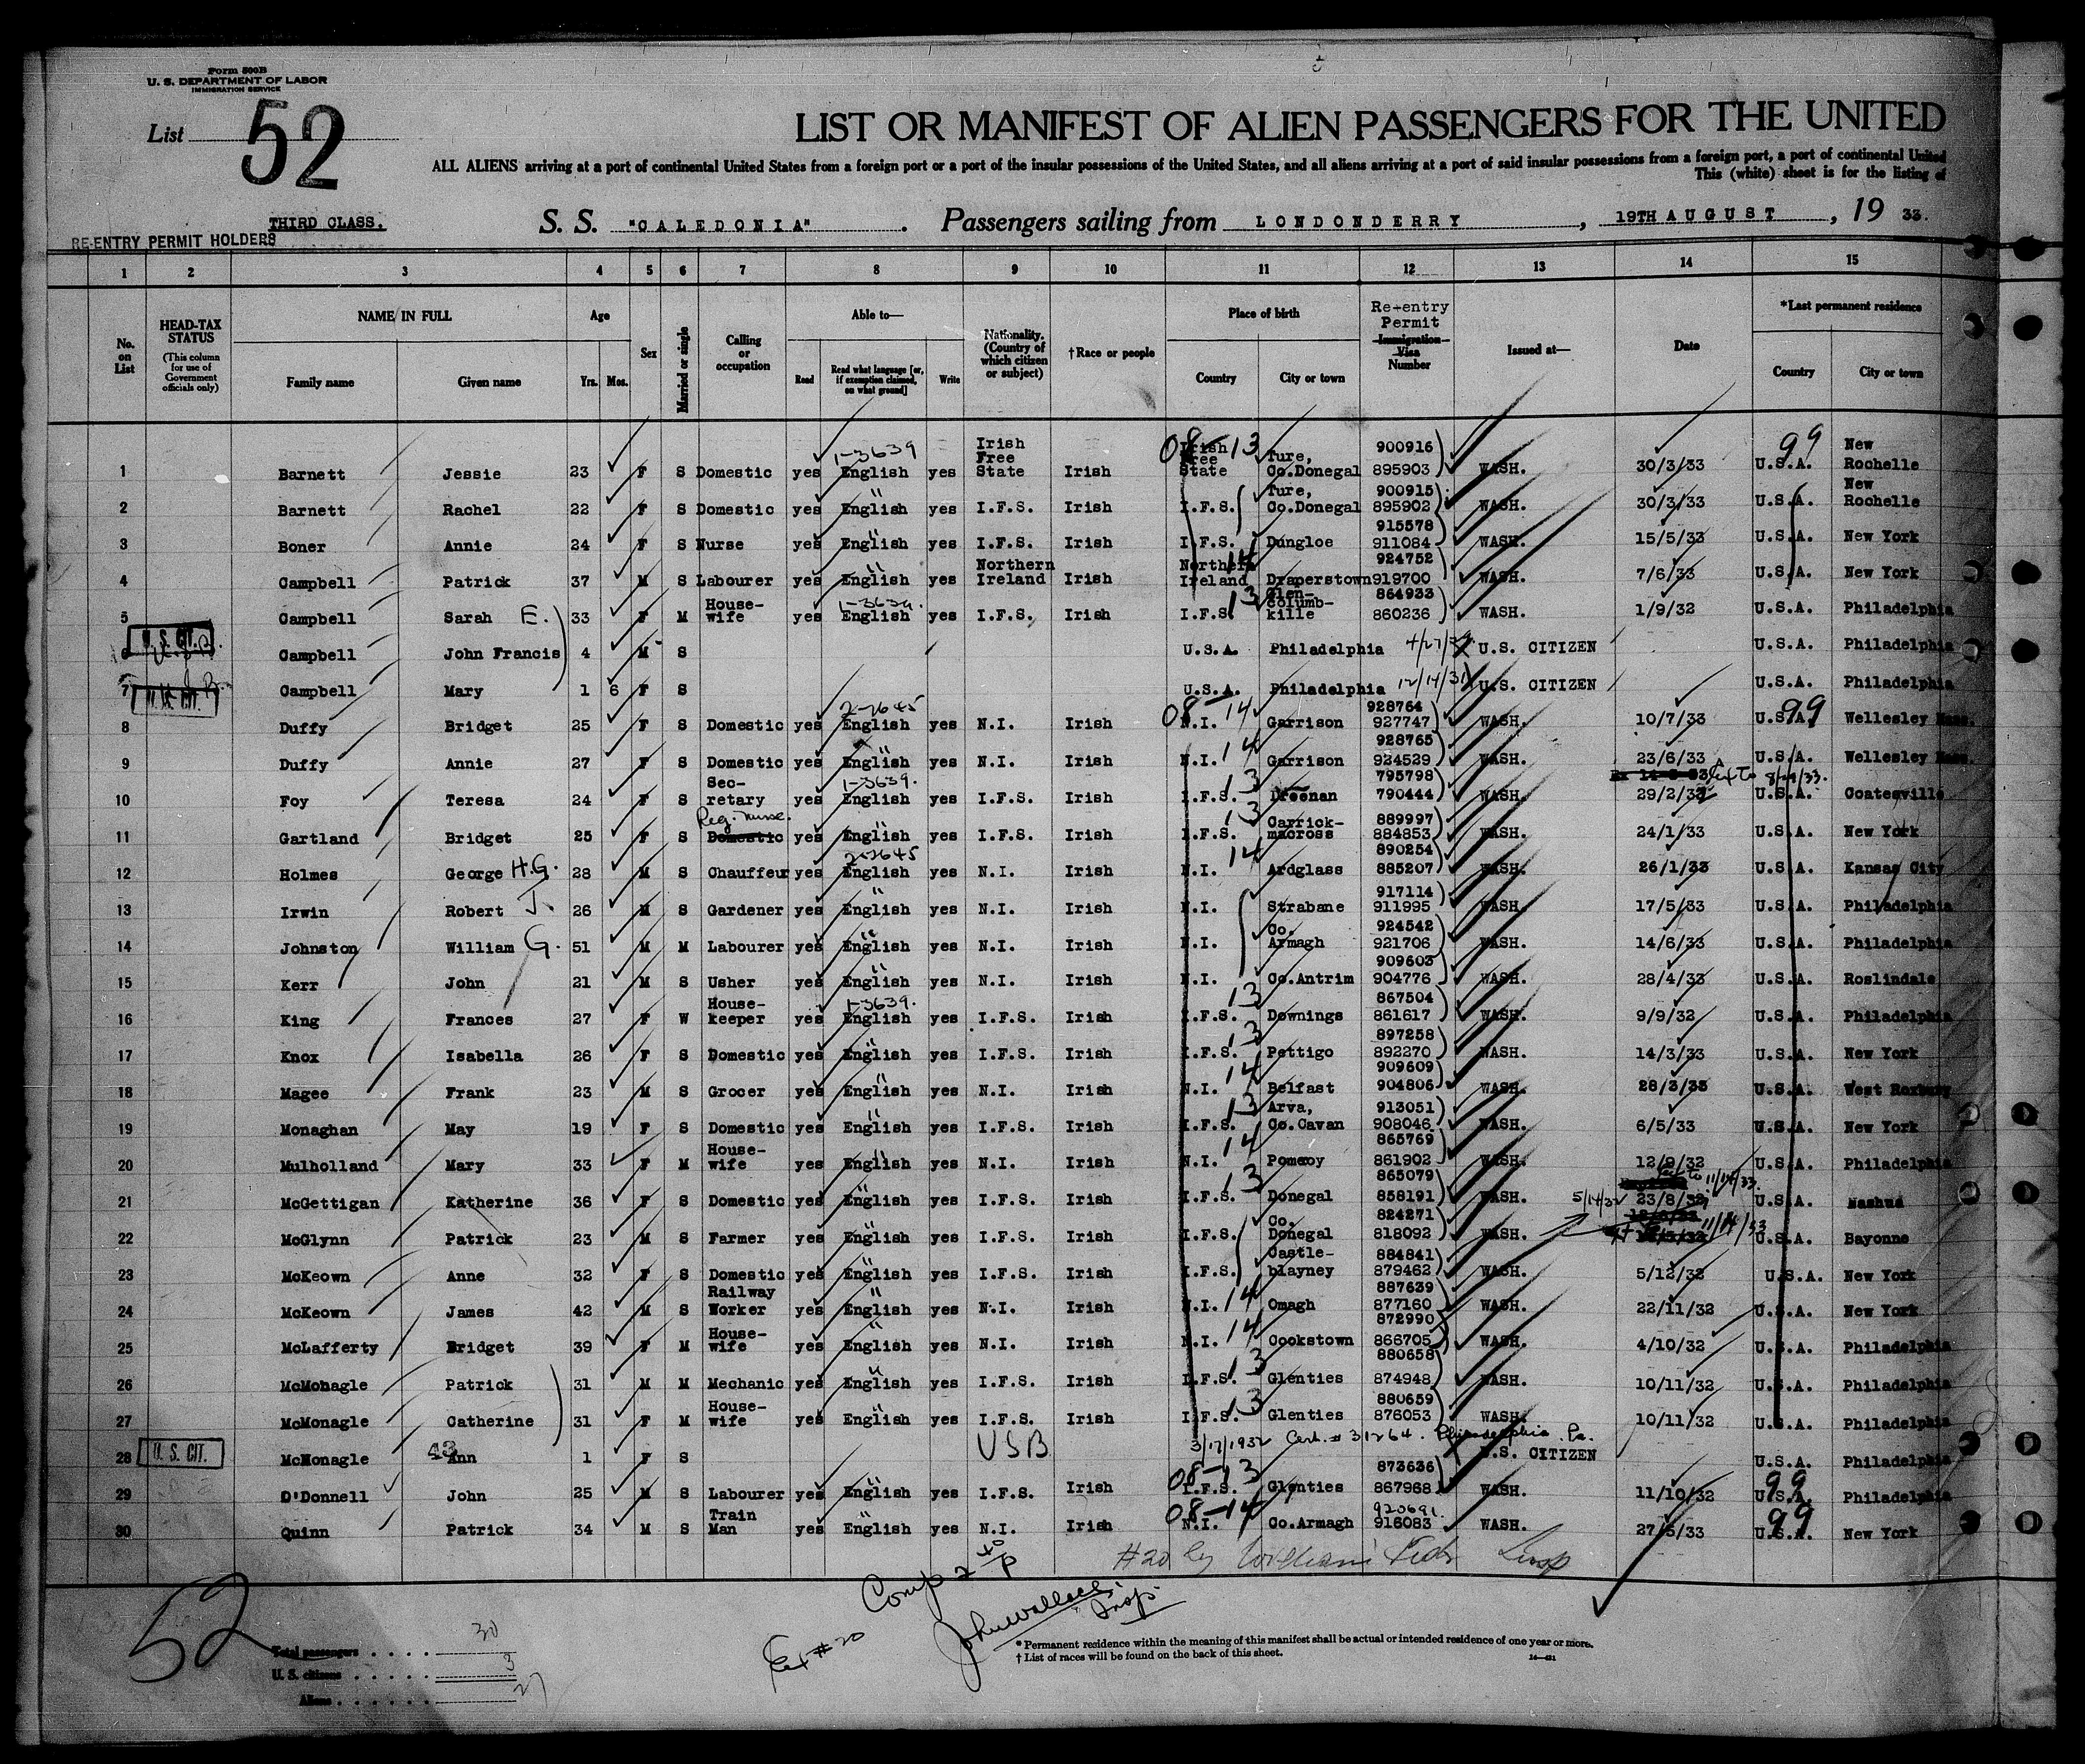 Form 500B
U. S. DEPARTMENT OF LABOR
IMMIGRATION SERVICE
List 52
LIST OR MANIFEST OF ALIEN PASSENGERS FOR THE UNITED
ALL ALIENS arriving at a port of continental United States from a foreign port or a port of the insular possessions of the United States, and all aliens arriving at a port of said insular possessions from a foreign port, a port of continental United
This (white) sheet is for the listing of
THIRD CLASS. S. S. "CALEDONIA" . Passengers sailing from LONDONDERRY , 19TH AUGUST , 19 33.
RE-ENTRY PERMIT HOLDERS
1 2 3 4 5 6 7 8 9 10 11 12 13 14 15
No. on List
HEAD-TAX STATUS (This column for use of Government officials only)
NAME IN FULL Family name Given name
Age Yrs. Mos.
Sex
Married or single
Calling or occupation
Able to— Read Read what language [or, if exemption claimed, on what ground] Write
Nationality. (Country of which citizen or subject)
†Race or people
Place of birth Country City or town
Re-entry Permit Immigration Visa Number
Issued at—
Date
*Last permanent residence Country City or town
1 Barnett Jessie 23 F S Domestic yes 1-3639 English yes Irish Free State Irish 08-13 Irish Free State Ture, Co.Donegal 900916 895903 WASH. 30/3/33 99 U.S.A. New Rochelle
2 Barnett Rachel 22 F S Domestic yes English yes I.F.S. Irish I.F.S. Ture, Co.Donegal 900915 895902 WASH. 30/3/33 U.S.A. New Rochelle
3 Boner Annie 24 F S Nurse yes English yes I.F.S. Irish I.F.S. Dungloe 915578 911084 WASH. 15/5/33 U.S.A. New York
4 Campbell Patrick 37 M S Labourer yes English yes Northern Ireland Irish Northern Ireland 14 Draperstown 924752 919700 WASH. 7/6/33 U.S.A. New York
5 Campbell Sarah E. 33 F M House-wife yes 1-3639. English yes I.F.S. Irish I.F.S. 13 Glen-columb-kille 864933 860236 WASH. 1/9/32 U.S.A. Philadelphia
U. S. CIT. 6 Campbell John Francis 4 M S U.S.A. Philadelphia U.S. CITIZEN U.S.A. Philadelphia
7 U. S. CIT. Campbell Mary 1 6 F S U.S.A. Philadelphia 12/14/31 U.S. CITIZEN U.S.A. Philadelphia
8 Duffy Bridget 25 F S Domestic yes 2-2645 English yes N.I. Irish 08-14 N.I. Garrison 928764 927747 WASH. 10/7/33 U.S.A. 99 Wellesley Mass.
9 Duffy Annie 27 F S Domestic yes English yes N.I. Irish N.I. 14 Garrison 928765 924529 WASH. 23/6/33 U.S.A. Wellesley Mass.
10 Foy Teresa 24 F S Sec-retary yes 1-3639. English yes I.F.S. Irish I.F.S. 13 Dreenan 795798 790444 WASH. 29/2/32 U.S.A. Coatesville
11 Gartland Bridget 25 F S Reg. Nurse. Domestic yes English yes I.F.S. Irish I.F.S. 13 Carrick-macross 889997 884853 WASH. 24/1/33 U.S.A. New York
12 Holmes George H.G. 28 M S Chauffeur yes 2-2645 English yes N.I. Irish N.I. 14 Ardglass 890254 885207 WASH. 26/1/33 U.S.A. Kansas City
13 Irwin Robert J. 26 M S Gardener yes English yes N.I. Irish N.I. Strabane 917114 911995 WASH. 17/5/33 U.S.A. Philadelphia
14 Johnston William G. 51 M M Labourer yes English yes N.I. Irish N.I. Co. Armagh 924542 921706 WASH. 14/6/33 U.S.A. Philadelphia
15 Kerr John 21 M S Usher yes English yes N.I. Irish N.I. Co.Antrim 909603 904776 WASH. 28/4/33 U.S.A. Roslindale
16 King Frances 27 F W House-keeper yes 1-3639. English yes I.F.S. Irish I.F.S. 13 Downings 867504 861617 WASH. 9/9/32 U.S.A. Philadelphia
17 Knox Isabella 26 F S Domestic yes English yes I.F.S. Irish I.F.S. 13 Pettigo 897258 892270 WASH. 14/3/33 U.S.A. New York
18 Magee Frank 23 M S Grocer yes English yes N.I. Irish N.I. 14 Belfast 909609 904806 WASH. 28/3/33 U.S.A. West Roxbury
19 Monaghan May 19 F S Domestic yes English yes I.F.S. Irish I.F.S. 13 Arva, Co.Cavan 913051 908046 WASH. 6/5/33 U.S.A. New York
20 Mulholland Mary 33 F M House-wife yes English yes N.I. Irish N.I. 14 Pomeroy 865769 861902 WASH. 12/9/32 U.S.A. Philadelphia
21 McGettigan Katherine 36 F S Domestic yes English yes I.F.S. Irish I.F.S. 13 Donegal 865079 858191 WASH. 23/8/32 11/14/33. U.S.A. Nashua
22 McGlynn Patrick 23 M S Farmer yes English yes I.F.S. Irish I.F.S. Co. Donegal 824271 818092 WASH. 5/14/32 11/14/33 U.S.A. Bayonne
23 McKeown Anne 32 F S Domestic yes English yes I.F.S. Irish I.F.S. Castle-blayney 884841 879462 WASH. 5/12/32 U.S.A. New York
24 McKeown James 42 M S Railway Worker yes English yes N.I. Irish N.I. 14 Omagh 887639 877160 WASH. 22/11/32 U.S.A. New York
25 McLafferty Bridget 39 F M House-wife yes English yes N.I. Irish N.I. 14 Cookstown 872990 866705 WASH. 4/10/32 U.S.A. Philadelphia
26 McMonagle Patrick 31 M M Mechanic yes English yes I.F.S. Irish I.F.S. 13 Glenties 880658 874948 WASH. 10/11/32 U.S.A. Philadelphia
27 McMonagle Catherine 31 F M House-wife yes English yes I.F.S. Irish I.F.S. 13 Glenties 880659 876053 WASH. 10/11/32 U.S.A. Philadelphia
28 U. S. CIT. McMonagle Ann 1 F S USB 3/17/1932 Cert. # 31264. Philadelphia Pa. U.S. CITIZEN U.S.A. Philadelphia
29 O'Donnell John 25 M S Labourer yes English yes I.F.S. Irish 08-13 I.F.S. Glenties 873636 867968 WASH. 11/10/32 99 U.S.A. Philadelphia
30 Quinn Patrick 34 M S Train Man yes English yes N.I. Irish 08-14 N.I. Co.Armagh 920691. 916083 WASH. 27/5/33 99 U.S.A. New York
#20 by William Insp
52
Comp 2 40/P
John Wallace Insp.
Ex # 20
Total passengers . . . . 30
U. S. citizens . . . . . 3
Aliens . . . . . . 27
* Permanent residence within the meaning of this manifest shall be actual or intended residence of one year or more.
† List of races will be found on the back of this sheet.